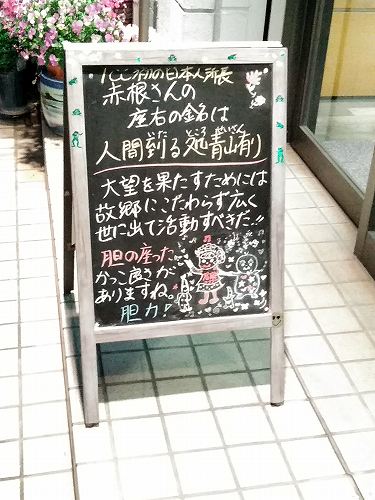 の日本人所長
赤根さんの
座右の銘は
人間到る処青山有り
いた ところ せいざん
大望を果たすためには
故郷にこだわらず広く
世に出て活動すべきだ!!
胆の座った
かっこ良さが
ありますね。
胆力!